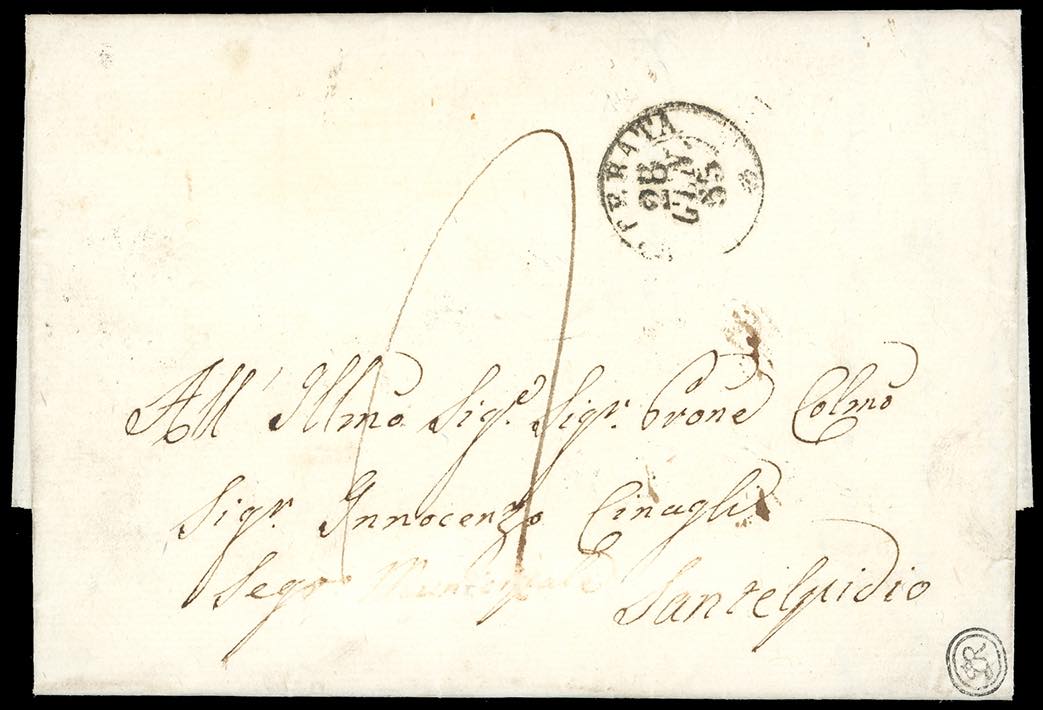 CERRATA
28
GEN
85
All' Illmo Sigr. Sigr. Prone Colmo
Sigr. Innocenzo Cinaglia
Segro Municipale
Santelpidio